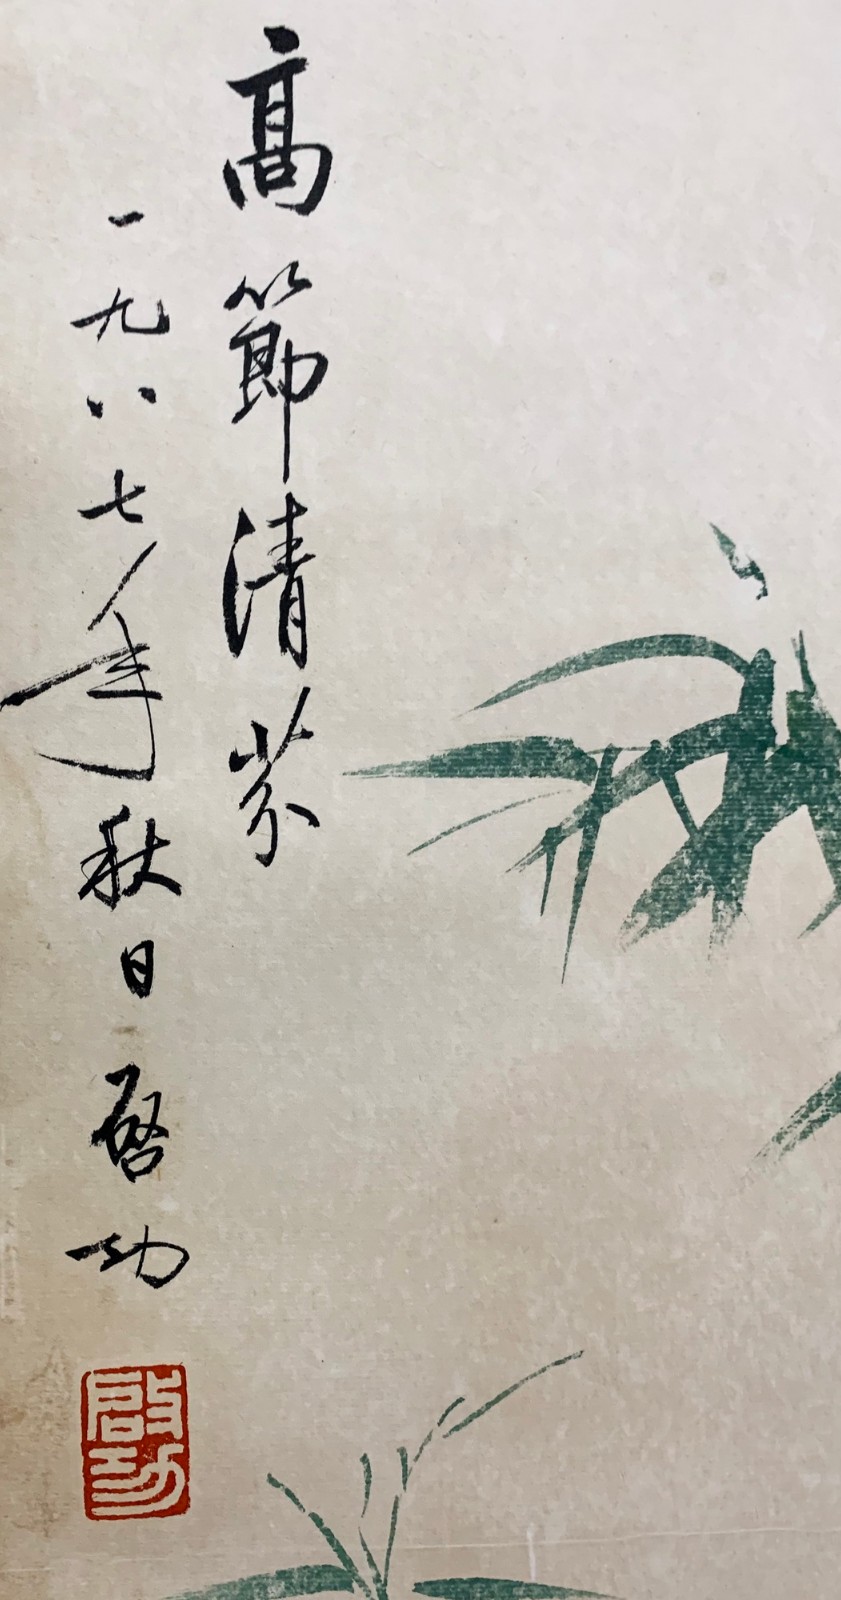 高節清芬
一九八七年秋日 啓功
啓功